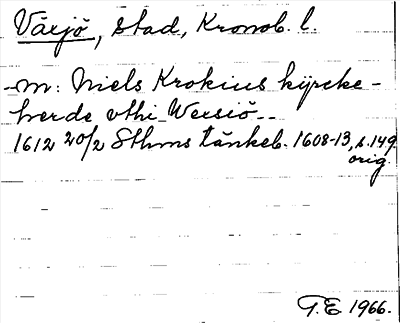 Växjö, stad, Kronob. l.
-m: Niels Krokius kijrcke-
herde vthi Wexsiö --
1612 20/2 Sthms tänkeb. 1608-13, s. 149
orig.
T.E 1966.